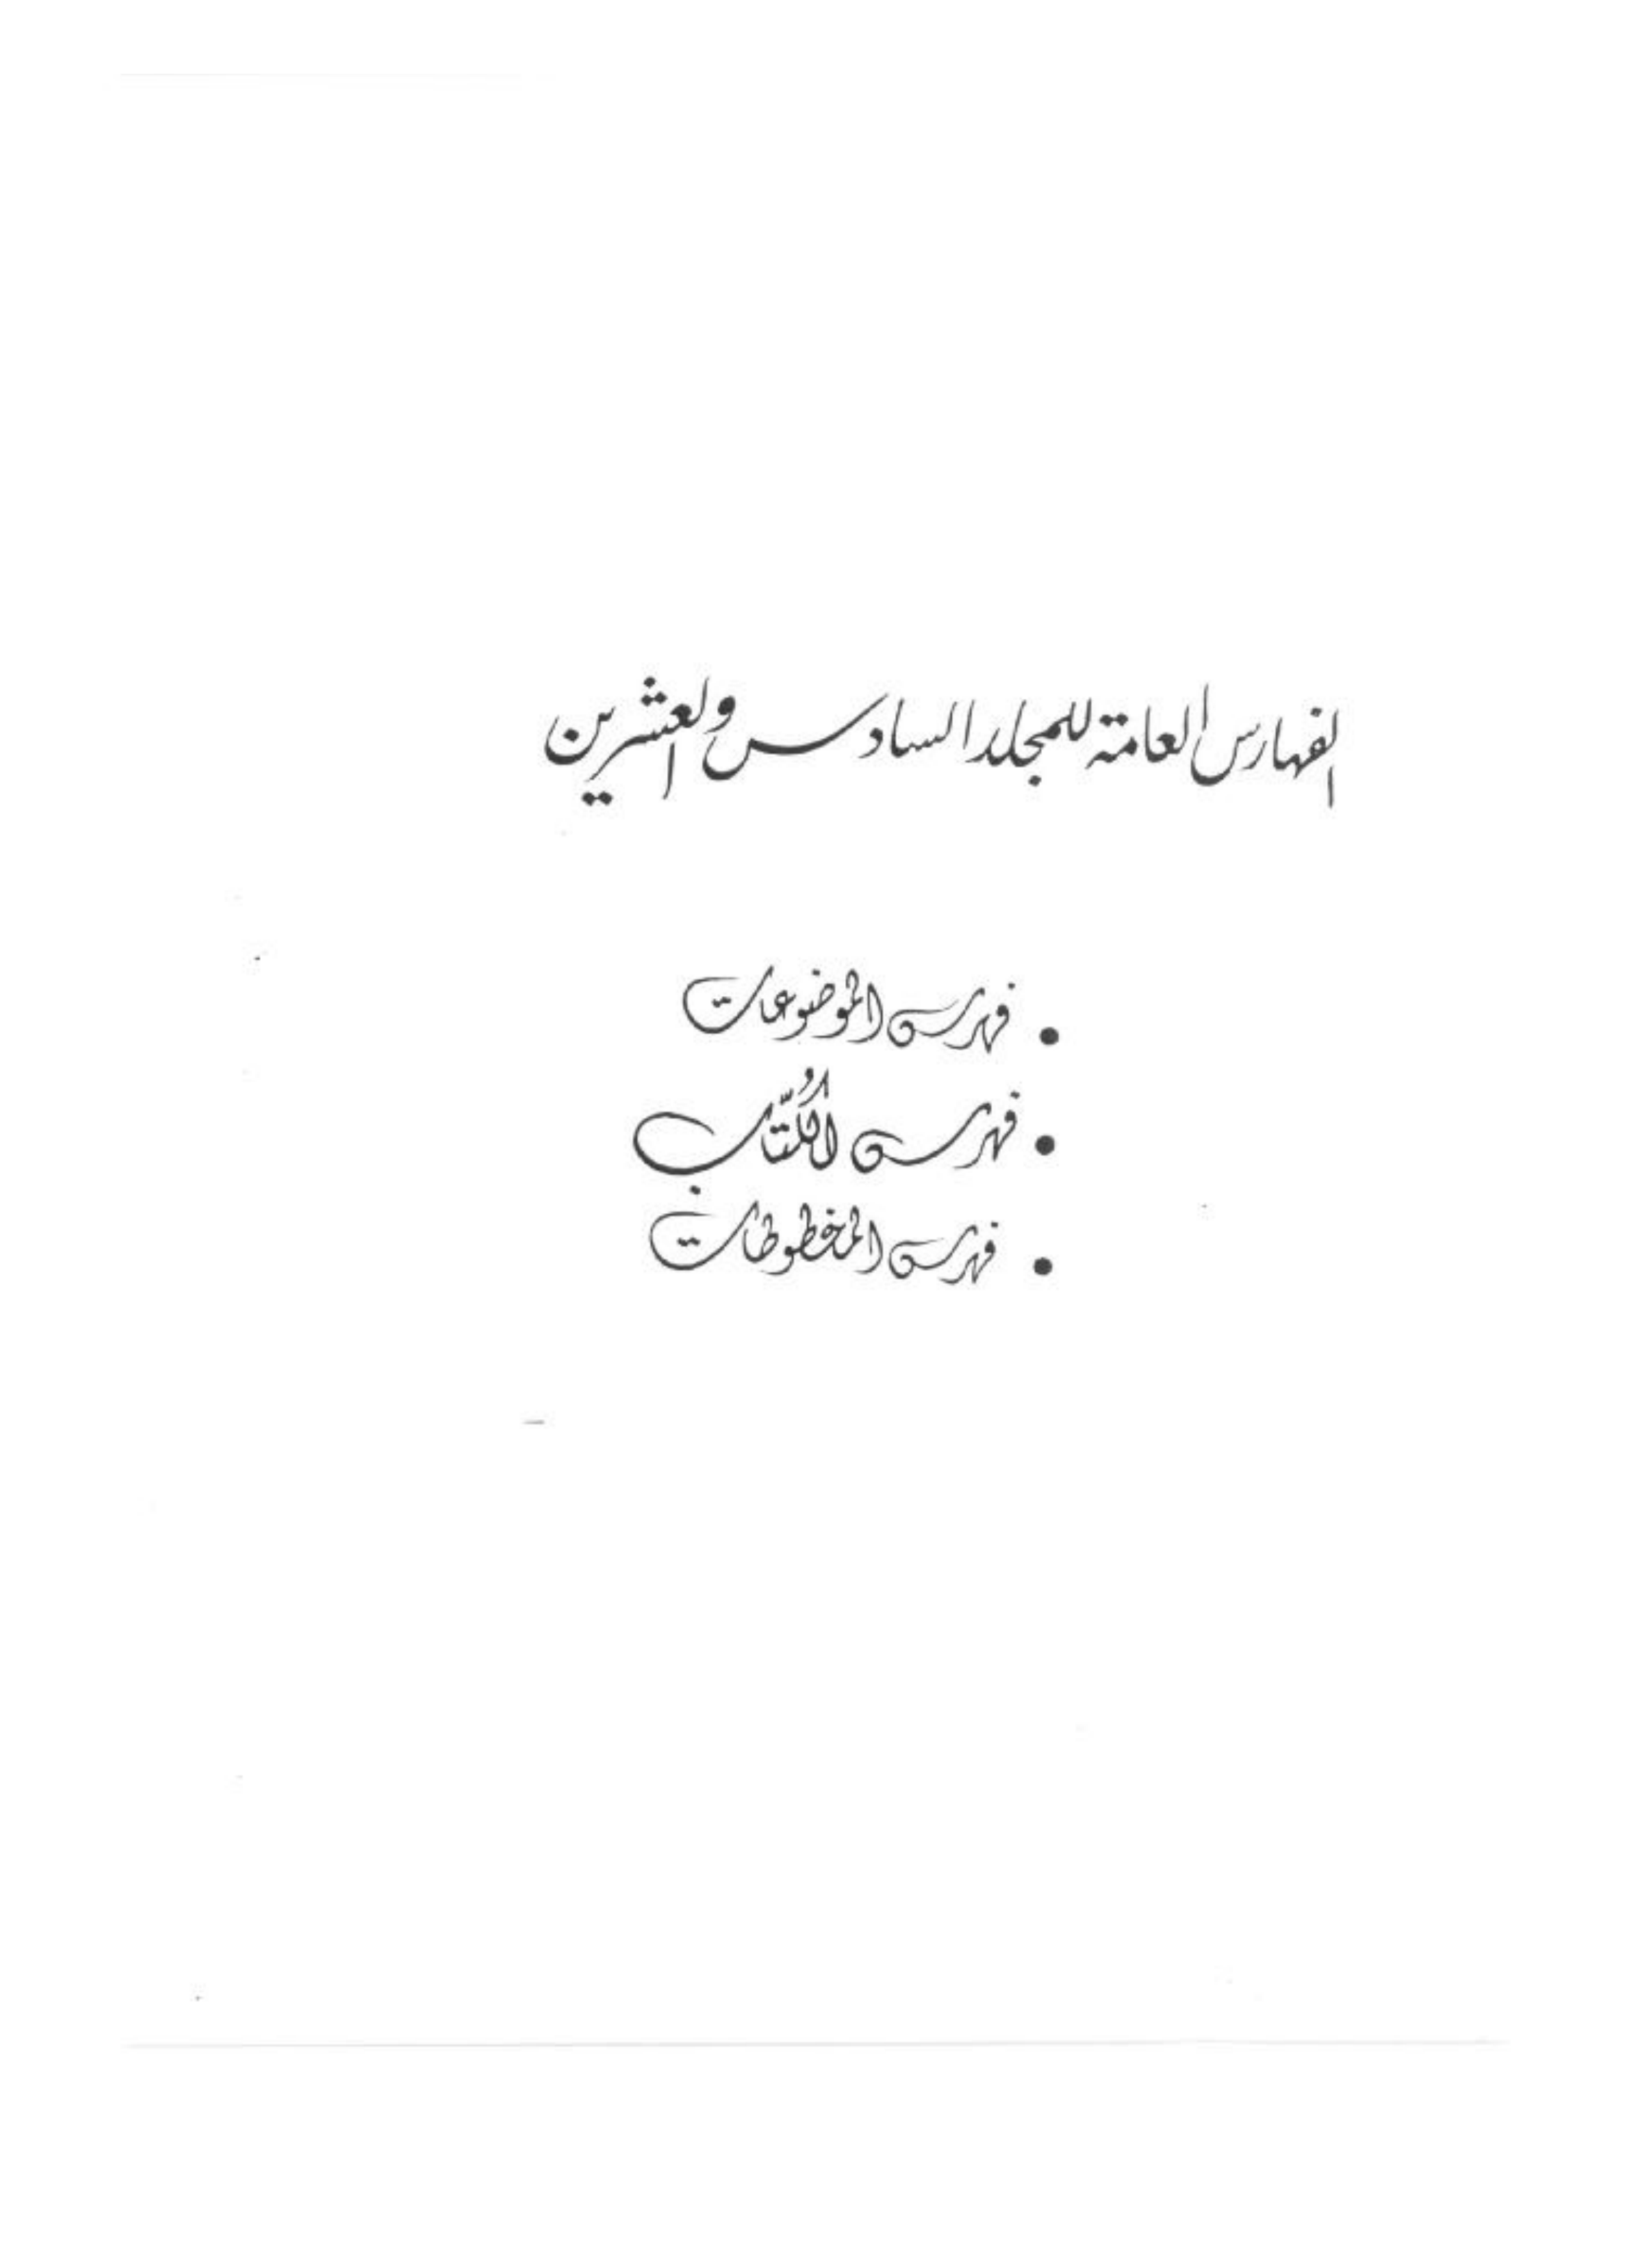 الفهارس العامة للمجلد السادس والعشرين
• فهرس الموضوعات
• فهرس الكُتّاب
• فهرس المخطوطات